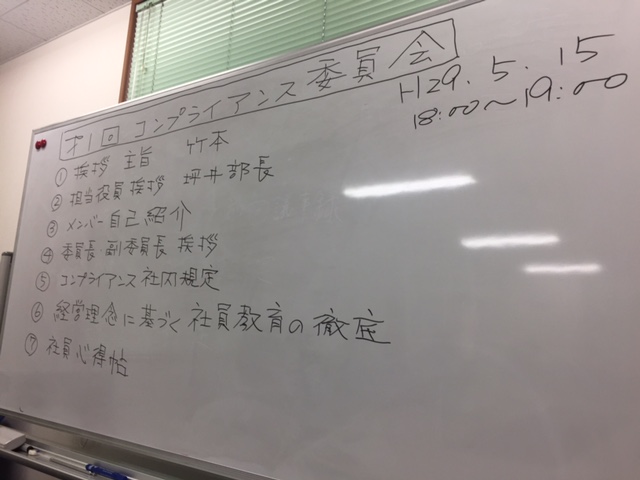 才1回 コンプライアンス委員会
H29.5.15
18:00～19:00
① 挨拶 主旨 竹本
② 担当役員挨拶 坪井部長
③ メンバー自己紹介
④ 委員長・副委員長挨拶
⑤ コンプライアンス社内規定
⑥ 経営理念に基づく社員教育の徹底
⑦ 社員心得帖